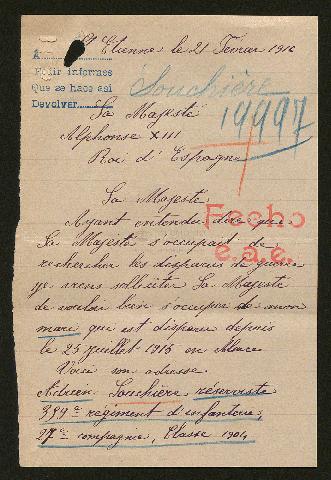 St Etienne le 21 Fevrier 1916
A
Pedir informes
Que se hace asi
Devolver
Souchière
19997
Sa Majesté
Alphonse XIII
Roi d'Espagne
Sa Majesté
Ayant entendu dire que
Fecho
Sa Majesté s'occupait de
e.a.e.
rechercher les disparus de guerre
je viens solliciter Sa Majesté
de vouloir bien s'occuper de mon
mari qui est disparu depuis
le 25 juillet 1915 en Alsace
Voici son adresse
Adrien Souchière réserviste
359e régiment d'infanterie,
27e compagnie, Classe 1904